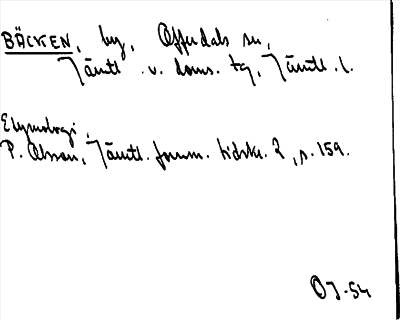 BÄCKEN, by, Offerdals sn,
Jämtl. v. doms. tg, Jämtl. l.
Etymologi:
P. Olsson, Jämtl. fornm. tidskr. 2, s. 159.
OJ-54